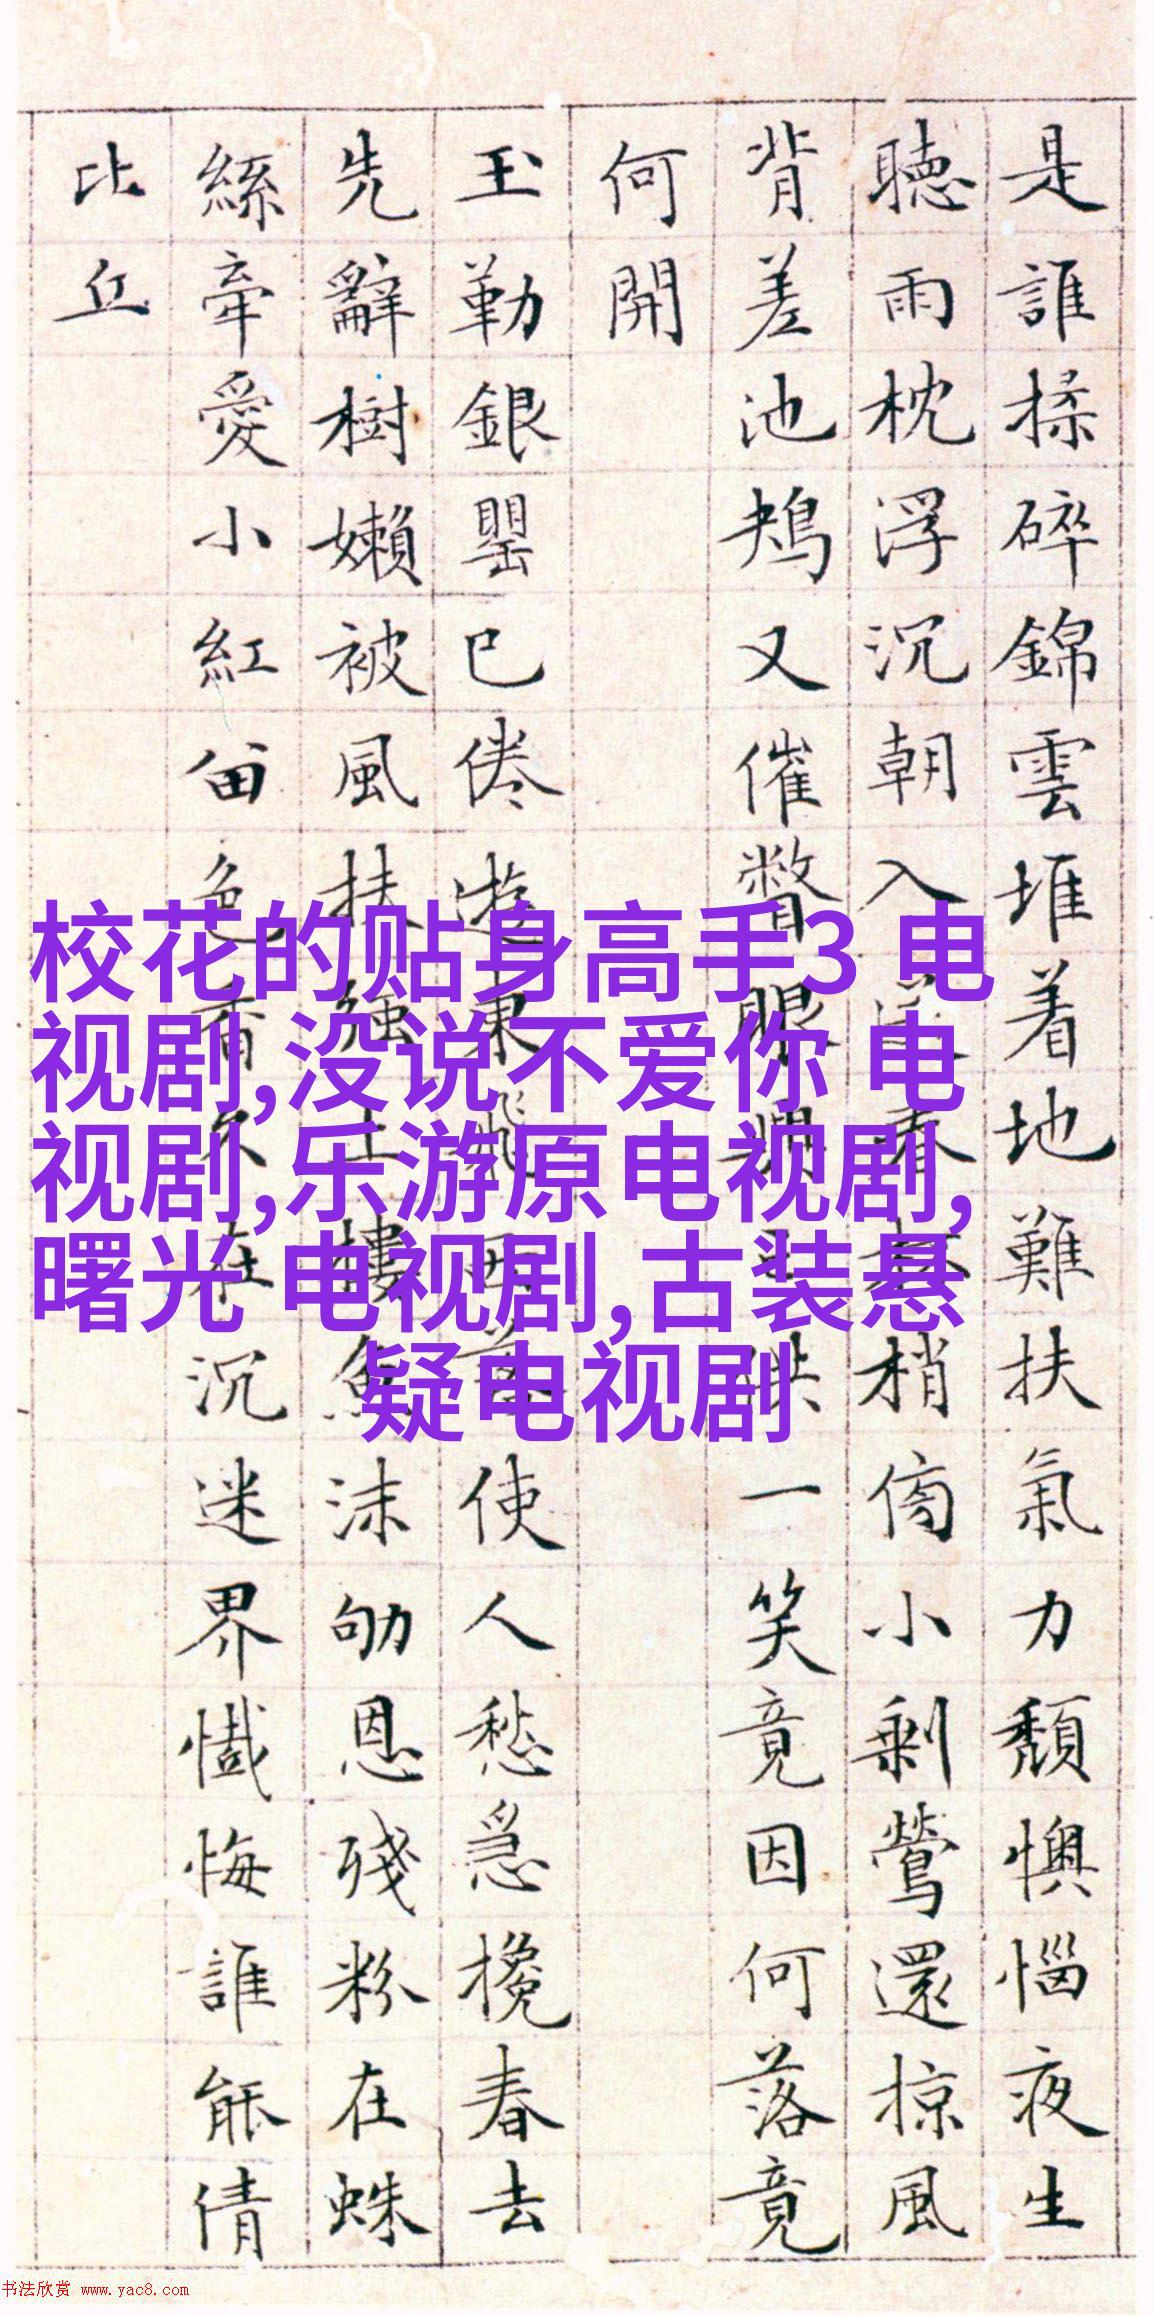 是誰揉碎錦雲堆着地難扶氣力頹懊惱夜生
聴雨枕浮沉朝入春梢小剩鶯還掠風
背差池鴂又催瞥眼供一笑竟因何落竟
何開
玉勒銀罌已倦遊東飛西落使人愁急攙春去
先辭樹嬾被風扶強上樓魚沫劬恩殘粉在蛛
絲牽愛小紅留色香久在沉迷界懺悔誰能倩
比丘
校花的贴身高手3 电
视剧,没说不爱你 电
视剧,乐游原电视剧,
曙光 电视剧,古装悬
疑电视剧
书法欣赏 www.yac8.com